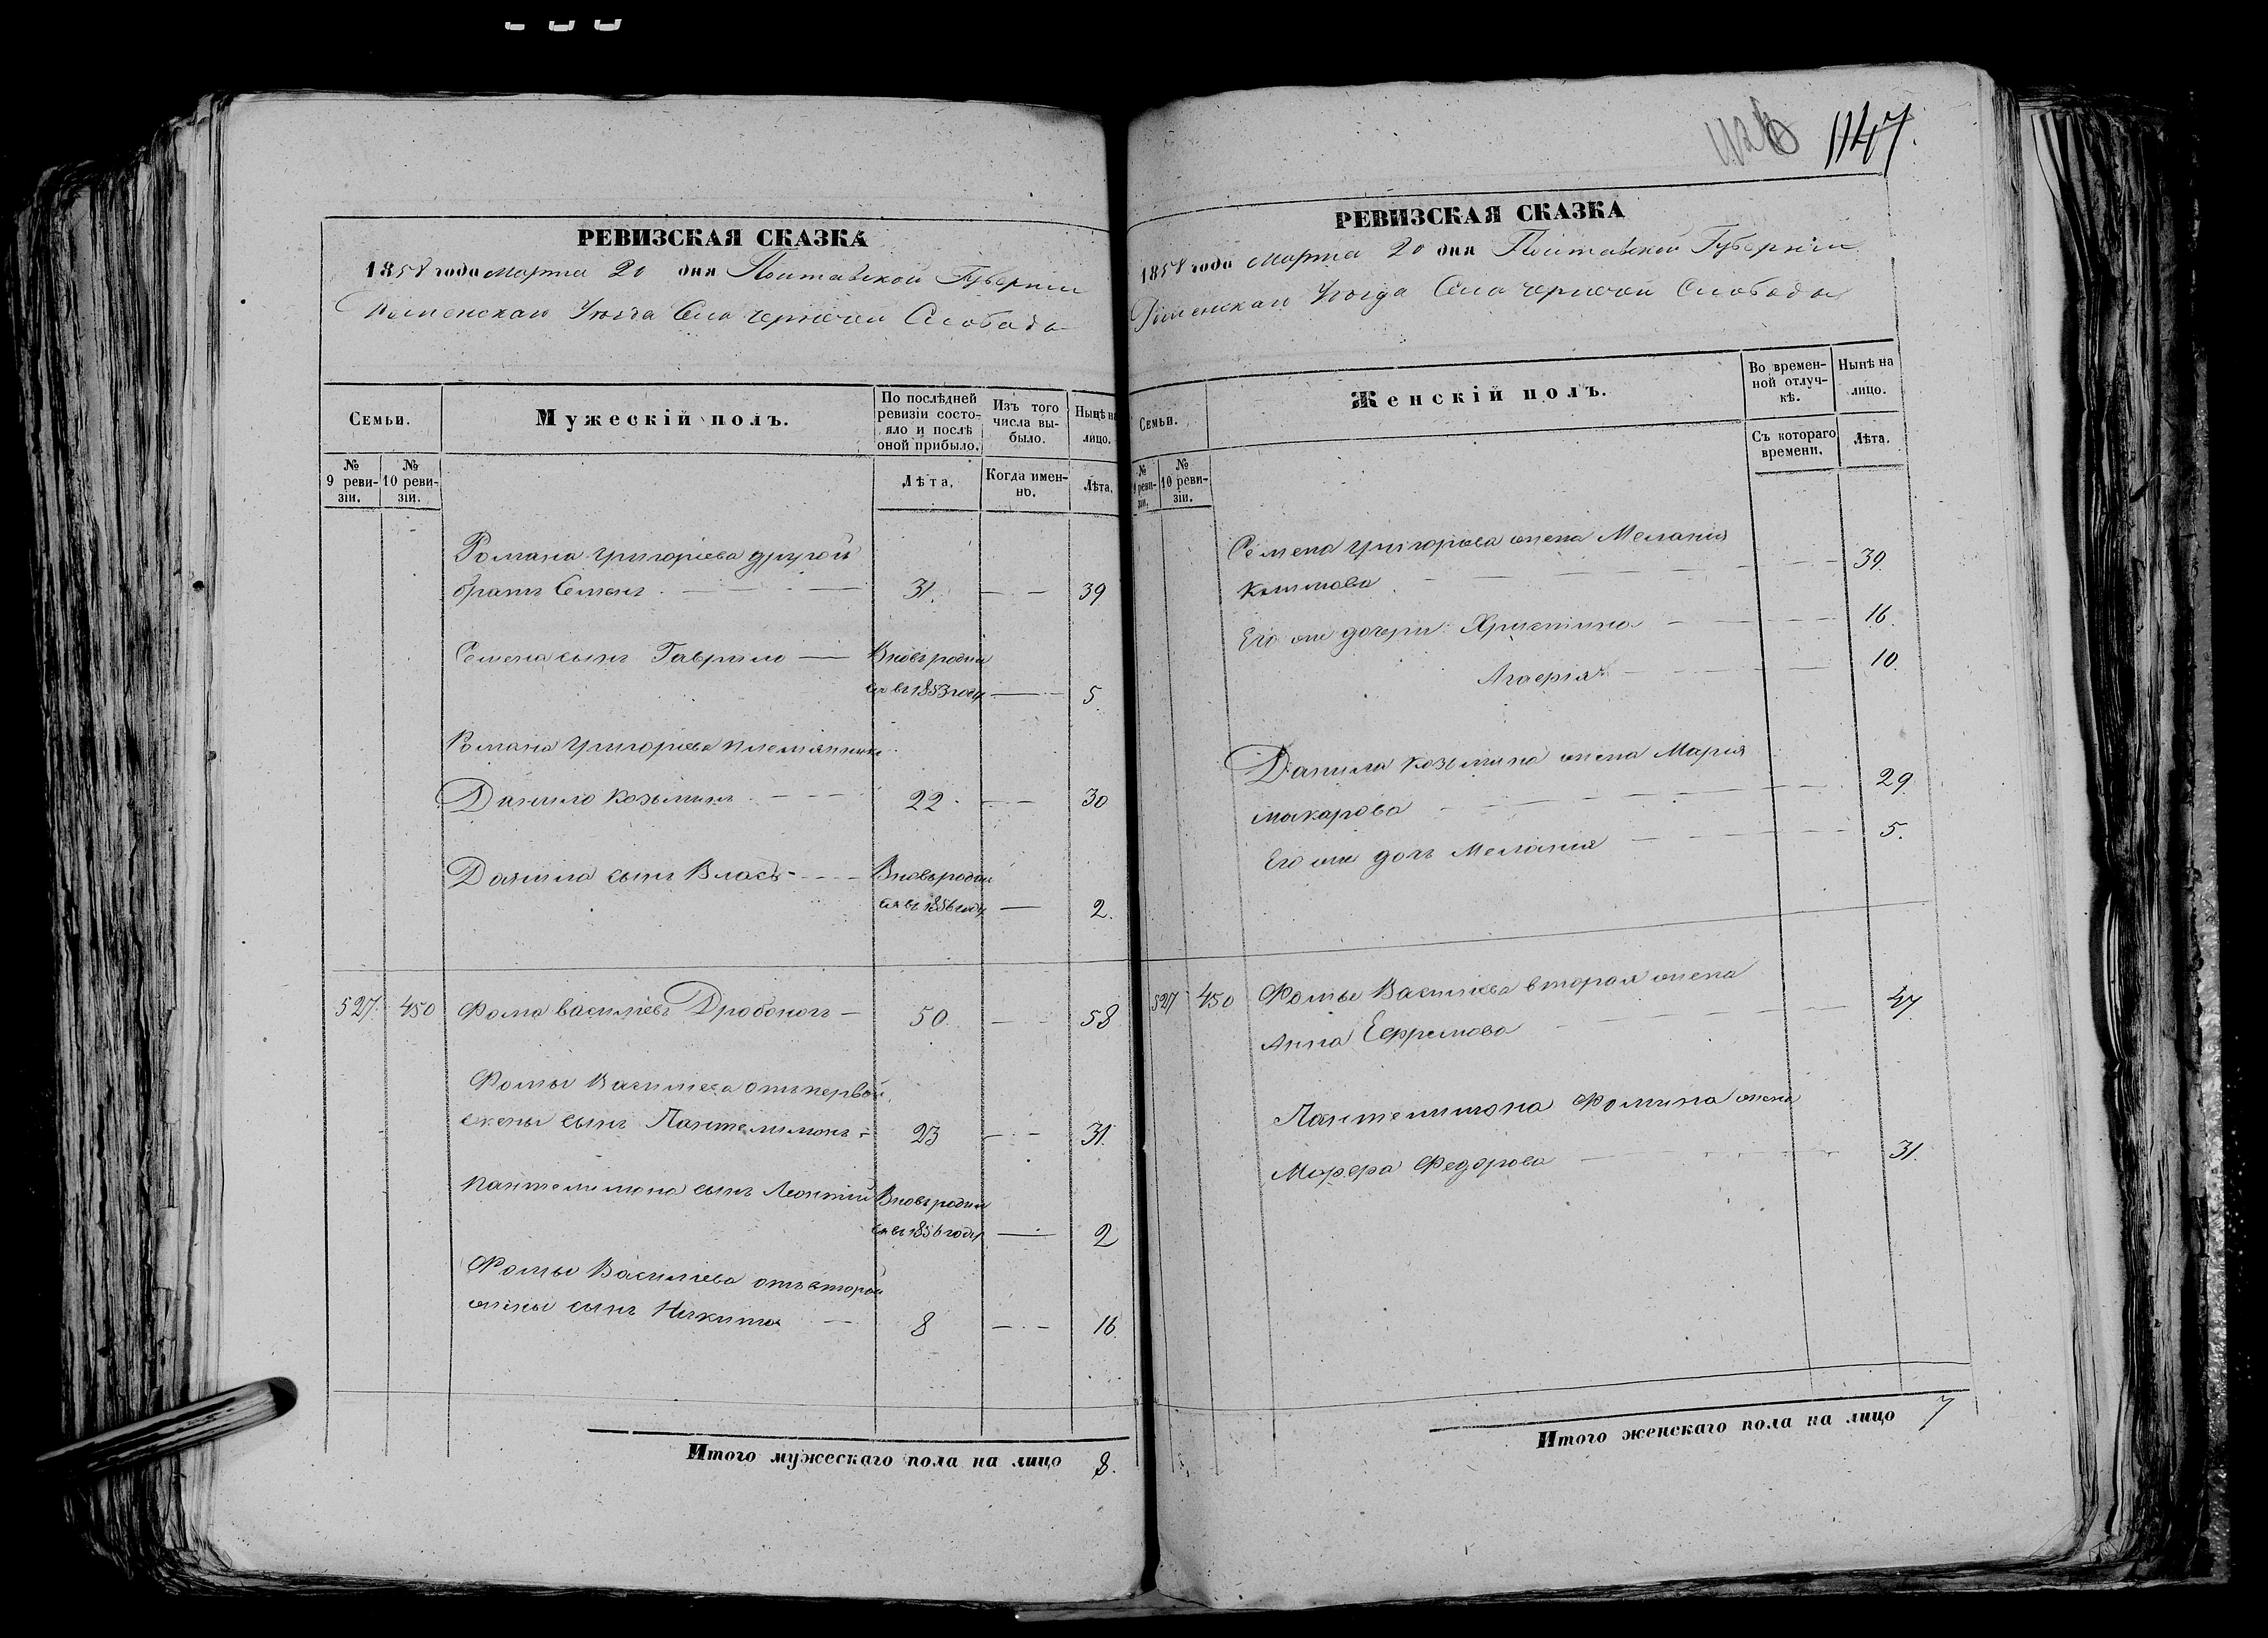 1147.
РЕВИЗСКАЯ СКАЗКА
1858 года Марта 20 дня Полтавской Губерніи
Роменскаго Уѣзда Села Чернечей Слободы
Семьи.
Мужескій полъ.
По послѣдней ревизіи состояло и послѣ оной прибыло.
Изъ того числа выбыло.
Нынѣ на лицо.
№ 9 ревизіи.
№ 10 ревизіи.
Лѣта.
Когда именно.
Лѣта.
Романа Григоріева другой
братъ Семенъ 31. 39
Семена сынъ Гаврило Вновь родил
ся въ 1853 году 5.
Романа Григоріева племянникъ
Данило Козьминъ 22. 30
Данила сынъ Власъ Вновь родил
ся въ 1856 году 2.
527. 450 Фома Васильевъ Дробоногъ 50. 58
Фомы Василіева отъ первой
жены сынъ Пантелимонъ 23 31.
Пантелимона сынъ Леонтій Вновь родил
ся въ 1856 году 2
Фомы Василіева отъ второй
жены сынъ Никита 8 16.
Итого мужескаго пола на лицо 8.
РЕВИЗСКАЯ СКАЗКА
1858 года Марта 20 дня Полтавской Губерніи
Роменскаго Уѣзда Села Чернечей Слободы
Семьи.
Женскій полъ.
Во временной отлучкѣ.
Нынѣ на лицо.
№ 9 ревизіи.
№ 10 ревизіи.
Съ котораго времени.
Лѣта.
Семена Григорьева жена Меланія
39.
Его же дочери: Христина 16.
Агафія 10.
Данила Козьмина жена Марія
Макарова 29.
Его же дочь Меланія 5.
527 450 Фомы Василіева вторая жена
Анна Ефремова 47
Пантелимона Фомина жена
Марфа Федорова 31.
Итого женскаго пола на лицо 7